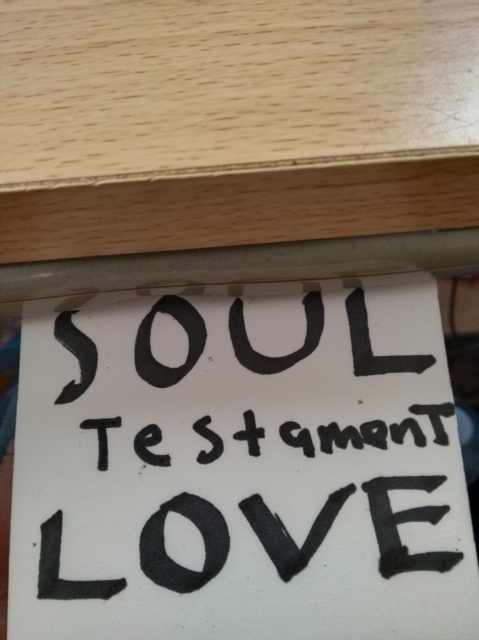 SOUL
Testament
LOVE